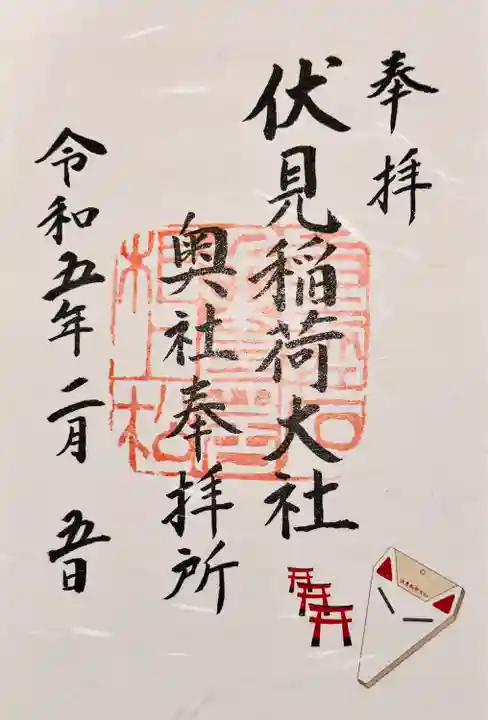 奉拝
伏見稲荷大社
奥社奉拝所
令和五年二月五日